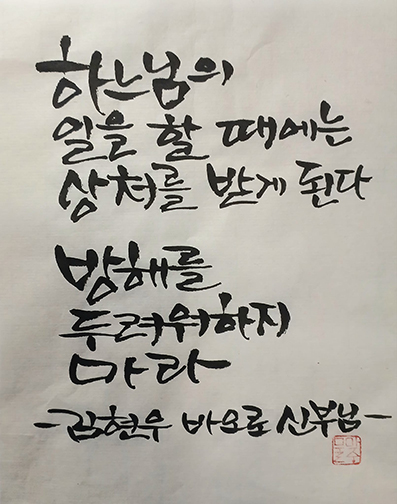 하느님의
일을 할 때에는
상처를 받게 된다
방해를
두려워하지
마라
-김현우 바오로 신부님-